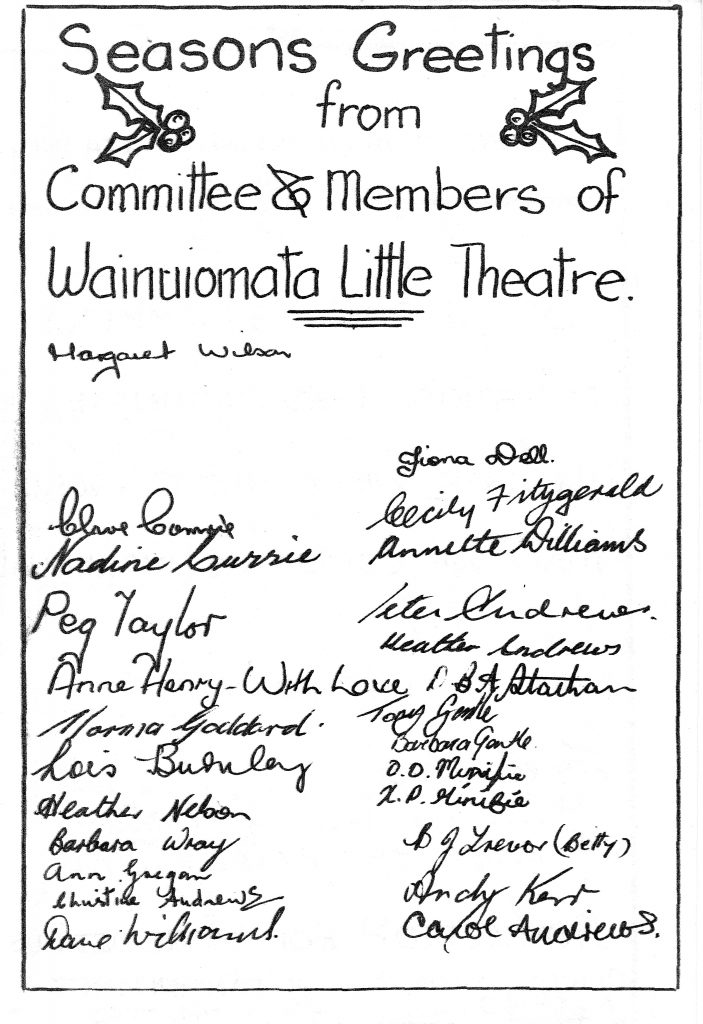 Seasons Greetings
from
Committee & Members of
Wainuiomata Little Theatre.
Margaret Wilson
Fiona Dell.
Clive Comrie
Cecily Fitzgerald
Nadine Currie
Annette Williams
Peg Taylor
Peter Andrews.
Heather Andrews
Anne Henry - With Love
Norma Goddard.
Tony Gentle
Lois Burnley
Barbara Gentle
D.D. Minifie
Heather Nelson
Barbara Wray
B J Trevor (Betty)
Ann Gregan
Christine Andrews
Andy Kerr
Dave Williams.
Carol Andrews.